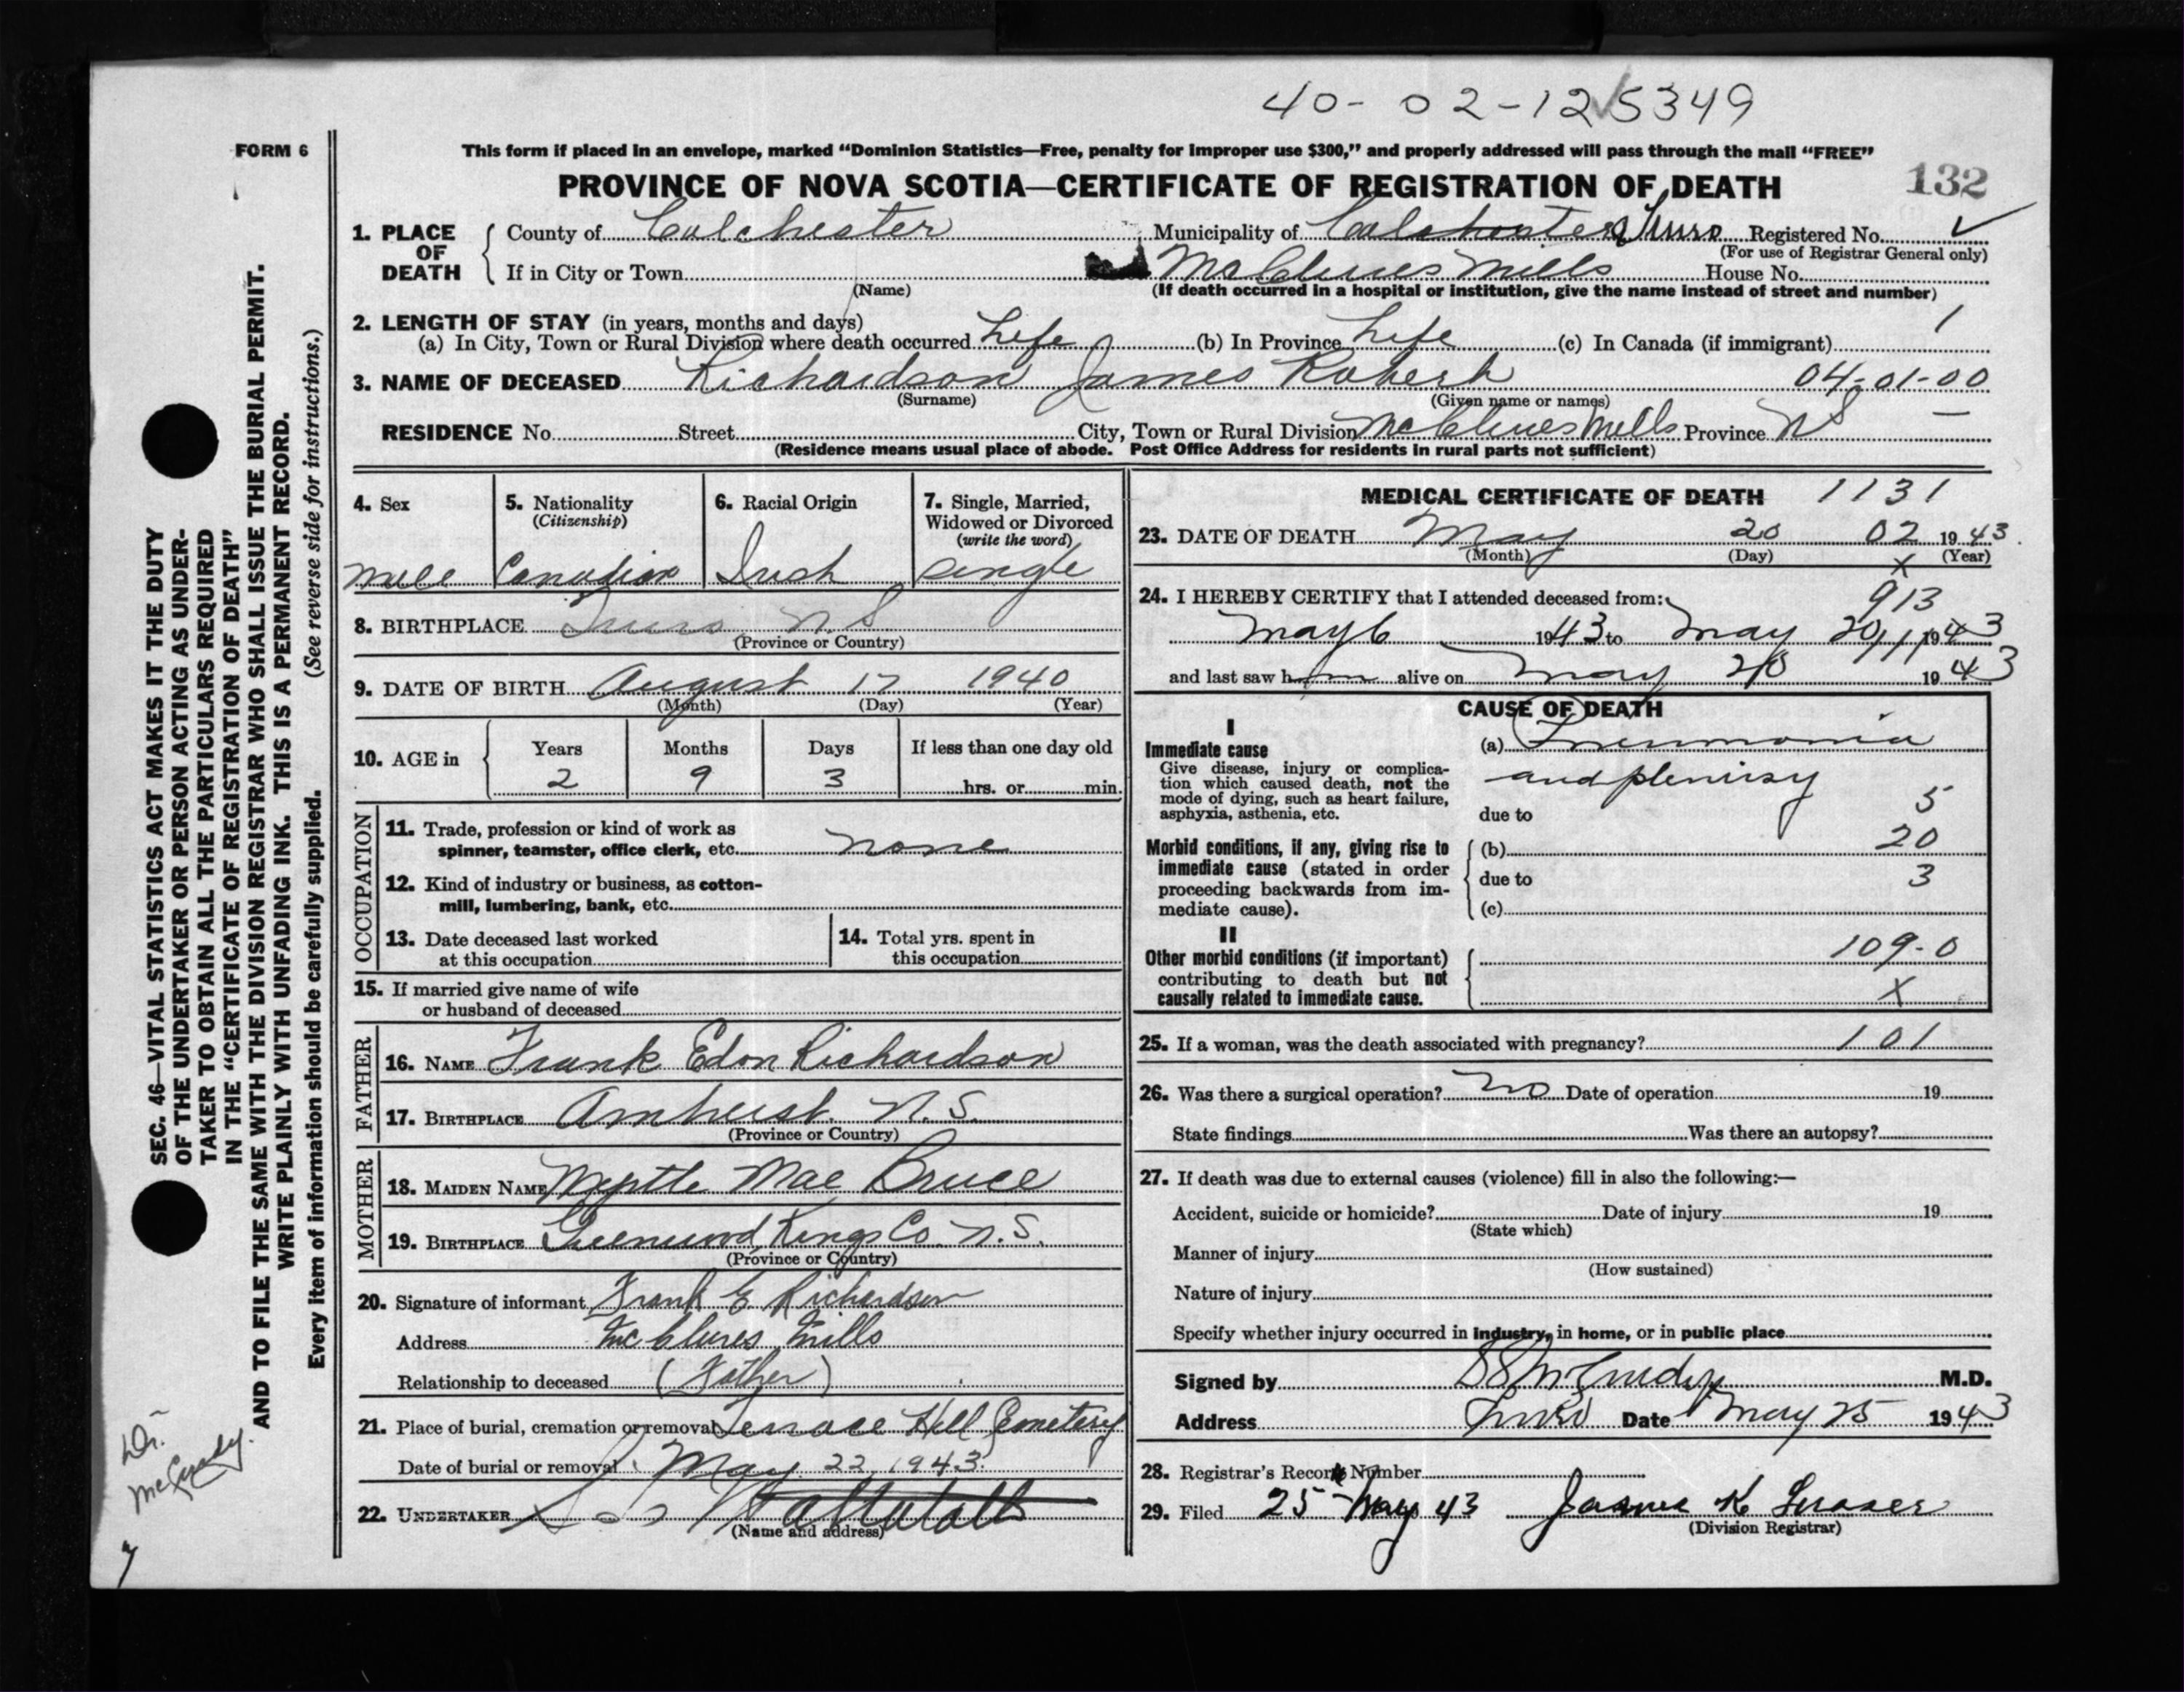 40-02-12 5349
FORM 6
This form if placed in an envelope, marked "Dominion Statistics—Free, penalty for improper use $300," and properly addressed will pass through the mail "FREE"
PROVINCE OF NOVA SCOTIA—CERTIFICATE OF REGISTRATION OF DEATH
132
1. PLACE OF DEATH
County of Colchester Municipality of Colchester Truro Registered No.
(For use of Registrar General only)
If in City or Town McClures Mills House No.
(Name) (If death occurred in a hospital or institution, give the name instead of street and number)
2. LENGTH OF STAY (in years, months and days) 1
(a) In City, Town or Rural Division where death occurred Life (b) In Province Life (c) In Canada (if immigrant)
3. NAME OF DECEASED Richardson James Robert 04-01-00
(Surname) (Given name or names)
RESIDENCE No. Street City, Town or Rural Division McClures Mills Province N S
(Residence means usual place of abode. Post Office Address for residents in rural parts not sufficient)
4. Sex
Male
5. Nationality
(Citizenship)
Canadian
6. Racial Origin
Irish
7. Single, Married,
Widowed or Divorced
(write the word)
single
8. BIRTHPLACE Truro N. S
(Province or Country)
9. DATE OF BIRTH August 17 1940
(Month) (Day) (Year)
10. AGE in
Years Months Days If less than one day old
2 9 3 hrs. or min.
OCCUPATION
11. Trade, profession or kind of work as
spinner, teamster, office clerk, etc. none
12. Kind of industry or business, as cotton-
mill, lumbering, bank, etc.
13. Date deceased last worked
at this occupation
14. Total yrs. spent in
this occupation
15. If married give name of wife
or husband of deceased
FATHER
16. NAME Frank Edon Richardson
17. BIRTHPLACE Amherst. N. S.
(Province or Country)
MOTHER
18. MAIDEN NAME Myrtle Mae Bruce
19. BIRTHPLACE Greenwood Kings Co. N. S.
(Province or Country)
20. Signature of informant Frank E Richardson
Address McClures Mills
Relationship to deceased (Father)
21. Place of burial, cremation or removal Terrace Hill Cemetery
Date of burial or removal May 22 1943
22. UNDERTAKER
(Name and address)
MEDICAL CERTIFICATE OF DEATH 1131
23. DATE OF DEATH May 20 02 1943
(Month) (Day) X (Year)
24. I HEREBY CERTIFY that I attended deceased from: 913
May 6 1943 to May 20 1943
and last saw him alive on May 20 1943
CAUSE OF DEATH
I
Immediate cause
Give disease, injury or complica-
tion which caused death, not the
mode of dying, such as heart failure,
asphyxia, asthenia, etc.
(a) Pneumonia
and pleurisy
due to 5
Morbid conditions, if any, giving rise to
immediate cause (stated in order
proceeding backwards from im-
mediate cause).
(b) 20
due to 3
(c)
II
Other morbid conditions (if important)
contributing to death but not
causally related to immediate cause.
109-0
X
25. If a woman, was the death associated with pregnancy? 101
26. Was there a surgical operation? No Date of operation 19
State findings Was there an autopsy?
27. If death was due to external causes (violence) fill in also the following:—
Accident, suicide or homicide? Date of injury 19
(State which)
Manner of injury
(How sustained)
Nature of injury
Specify whether injury occurred in industry, in home, or in public place
Signed by McCurdy M.D.
Address Truro Date May 25 1943
28. Registrar's Record Number
29. Filed 25 May 43 James K Fraser
(Division Registrar)
SEC. 46—VITAL STATISTICS ACT MAKES IT THE DUTY
OF THE UNDERTAKER OR PERSON ACTING AS UNDER-
TAKER TO OBTAIN ALL THE PARTICULARS REQUIRED
IN THE "CERTIFICATE OF REGISTRATION OF DEATH"
AND TO FILE THE SAME WITH THE DIVISION REGISTRAR WHO SHALL ISSUE THE BURIAL PERMIT.
WRITE PLAINLY WITH UNFADING INK. THIS IS A PERMANENT RECORD.
Every item of information should be carefully supplied. (See reverse side for instructions.)
Dr.
McCurdy.